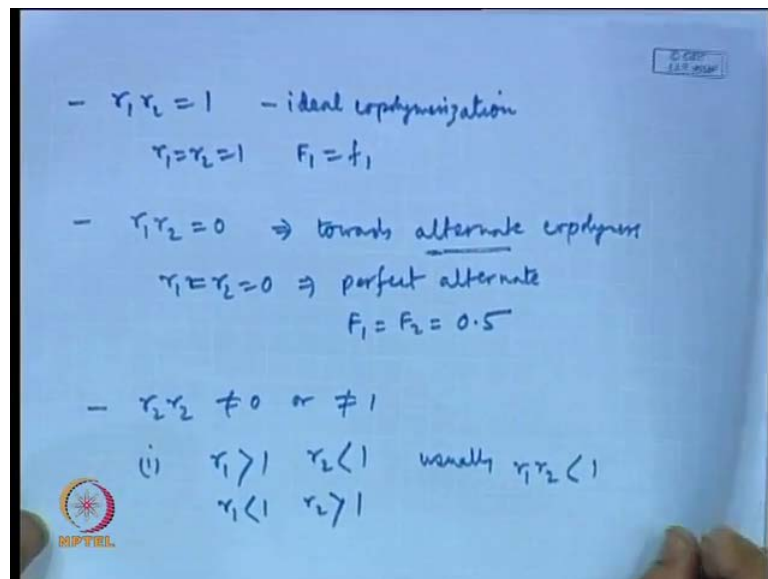 - r₁ r₂ = 1 - ideal copolymerization
r₁ = r₂ = 1 F₁ = f₁
- r₁ r₂ = 0 ⇒ towards alternate copolymers
r₁ = r₂ = 0 ⇒ perfect alternate
F₁ = F₂ = 0.5
- r₂ r₂ ≠ 0 or ≠ 1
(i) r₁ > 1 r₂ < 1 usually r₁ r₂ < 1
r₁ < 1 r₂ > 1
NPTEL